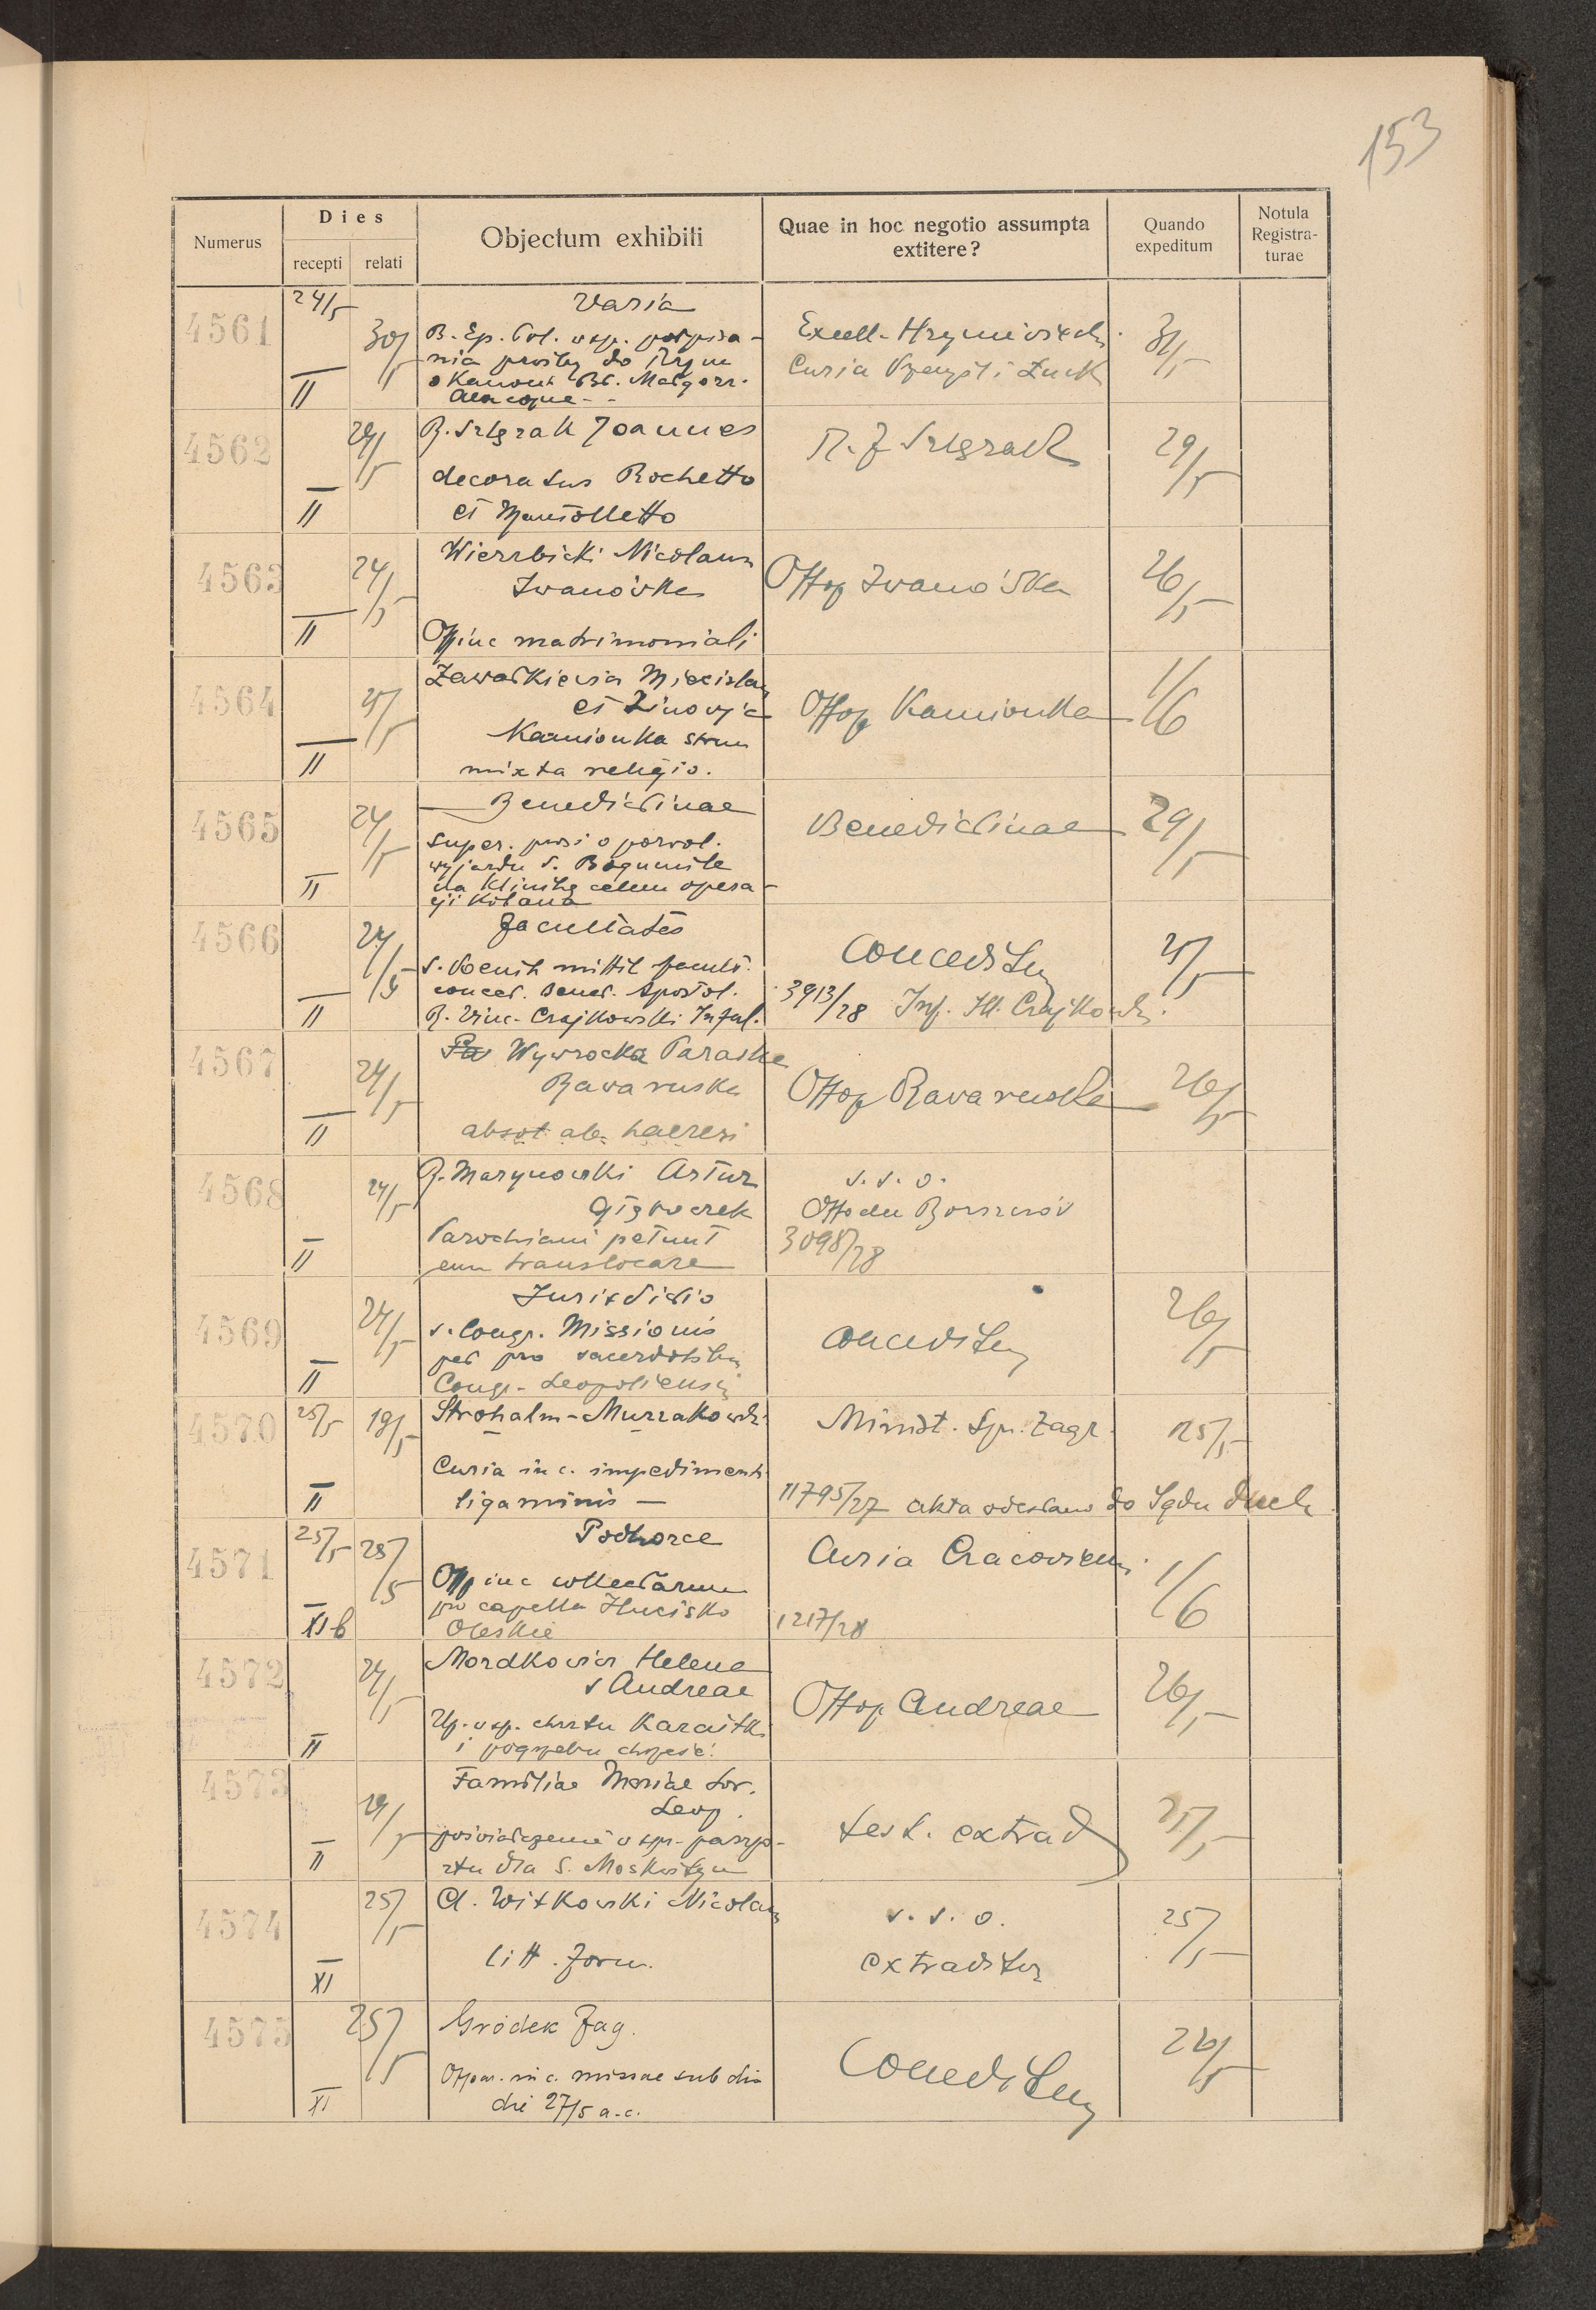 153
Numerus
Dies
recepti
relati
Objectum exhibiti
Quae in hoc negotio assumpta
extitere?
Quando
expeditum
Notula
Registra-
turae
4561
24/5
II
30/5
Varia
B. Ep. Pol. w sp. podpisa-
nia prośby do Rzymu
o Kanoniz. Bł. Małgorz.
Alacoque --
Excell. Hryniewiecki
Curia Przemyśl i Łuck
31/5
4562
II
29/5
R. Szlgrak Joannes
decoratus Rochetto
et Mantolletto
R. J Szlgrak
29/5
4563
II
24/5
Wierzbicki Nicolaus
Iwanówka
Offinc matrimoniali
Offop Iwanówka
26/5
4564
II
25/5
Zawadkiewicz Miecislaus
et Zinowja
Kamionka strum
mixta religio.
Offop Kamionka
1/6
4565
II
24/5
Benedictinae
super. prosi o pozwol.
wyjazdu S. Bogumile
na Klinikę celem opera-
cji kolana
Benedictinae
29/5
4566
II
24/5
Facultates
conced. Bened. Apostol.
R. Vinc. Czajkowski Inful.
Conceditur
3913/28 Inf. Czajkowski.
25/5
4567
II
24/5
Wywrocka Paraska
Rawa ruska
absol ab haeresi
Offop Rawa ruska
26/5
4568
II
24/5
R. Marynowski Artur
Głęboczek
Parochiani petunt
eum translocare
v. s. o.
Off. dec Borszczów
3098/28
4569
II
24/5
Jurisdictio
s. Congr. Missionis
pet pro sacerdotibus
Congr. Leopoliensis
conceditur
26/5
4570
25/5
II
19/5
Stroholm-Murzakowski
Curia in c. impedimenti
ligaminis —
Minist. Spr. Zagr.
11795/27 akta odesłano do Sądu duch.
25/5
4571
25/5
XI b
28/5
Podhorce
Off inc collectarum
pro capella Hucisko
Oleskie
Curia Cracovien.
1217/28
1/6
4572
II
24/5
Mordkowicz Helena
s Andreae
Up. w sp. chrztu Karaitki
i pogrzebu chrześc.
Offop Andreae
26/5
4573
II
24/5
Familiae Mariae Sor.
Leop.
poświadczenie w spr. paszpo-
rtu dla S. Moskwityn
test. extrad
25/5
4574
XI
25/5
Cl. Witkowski Nicolaus
litt. form.
v. s. o.
extraditur
25/5
4575
XI
25/5
Gródek Jag.
Offpar. in c. missae sub dio
die 27/5 a.c.
Conceditur
26/5